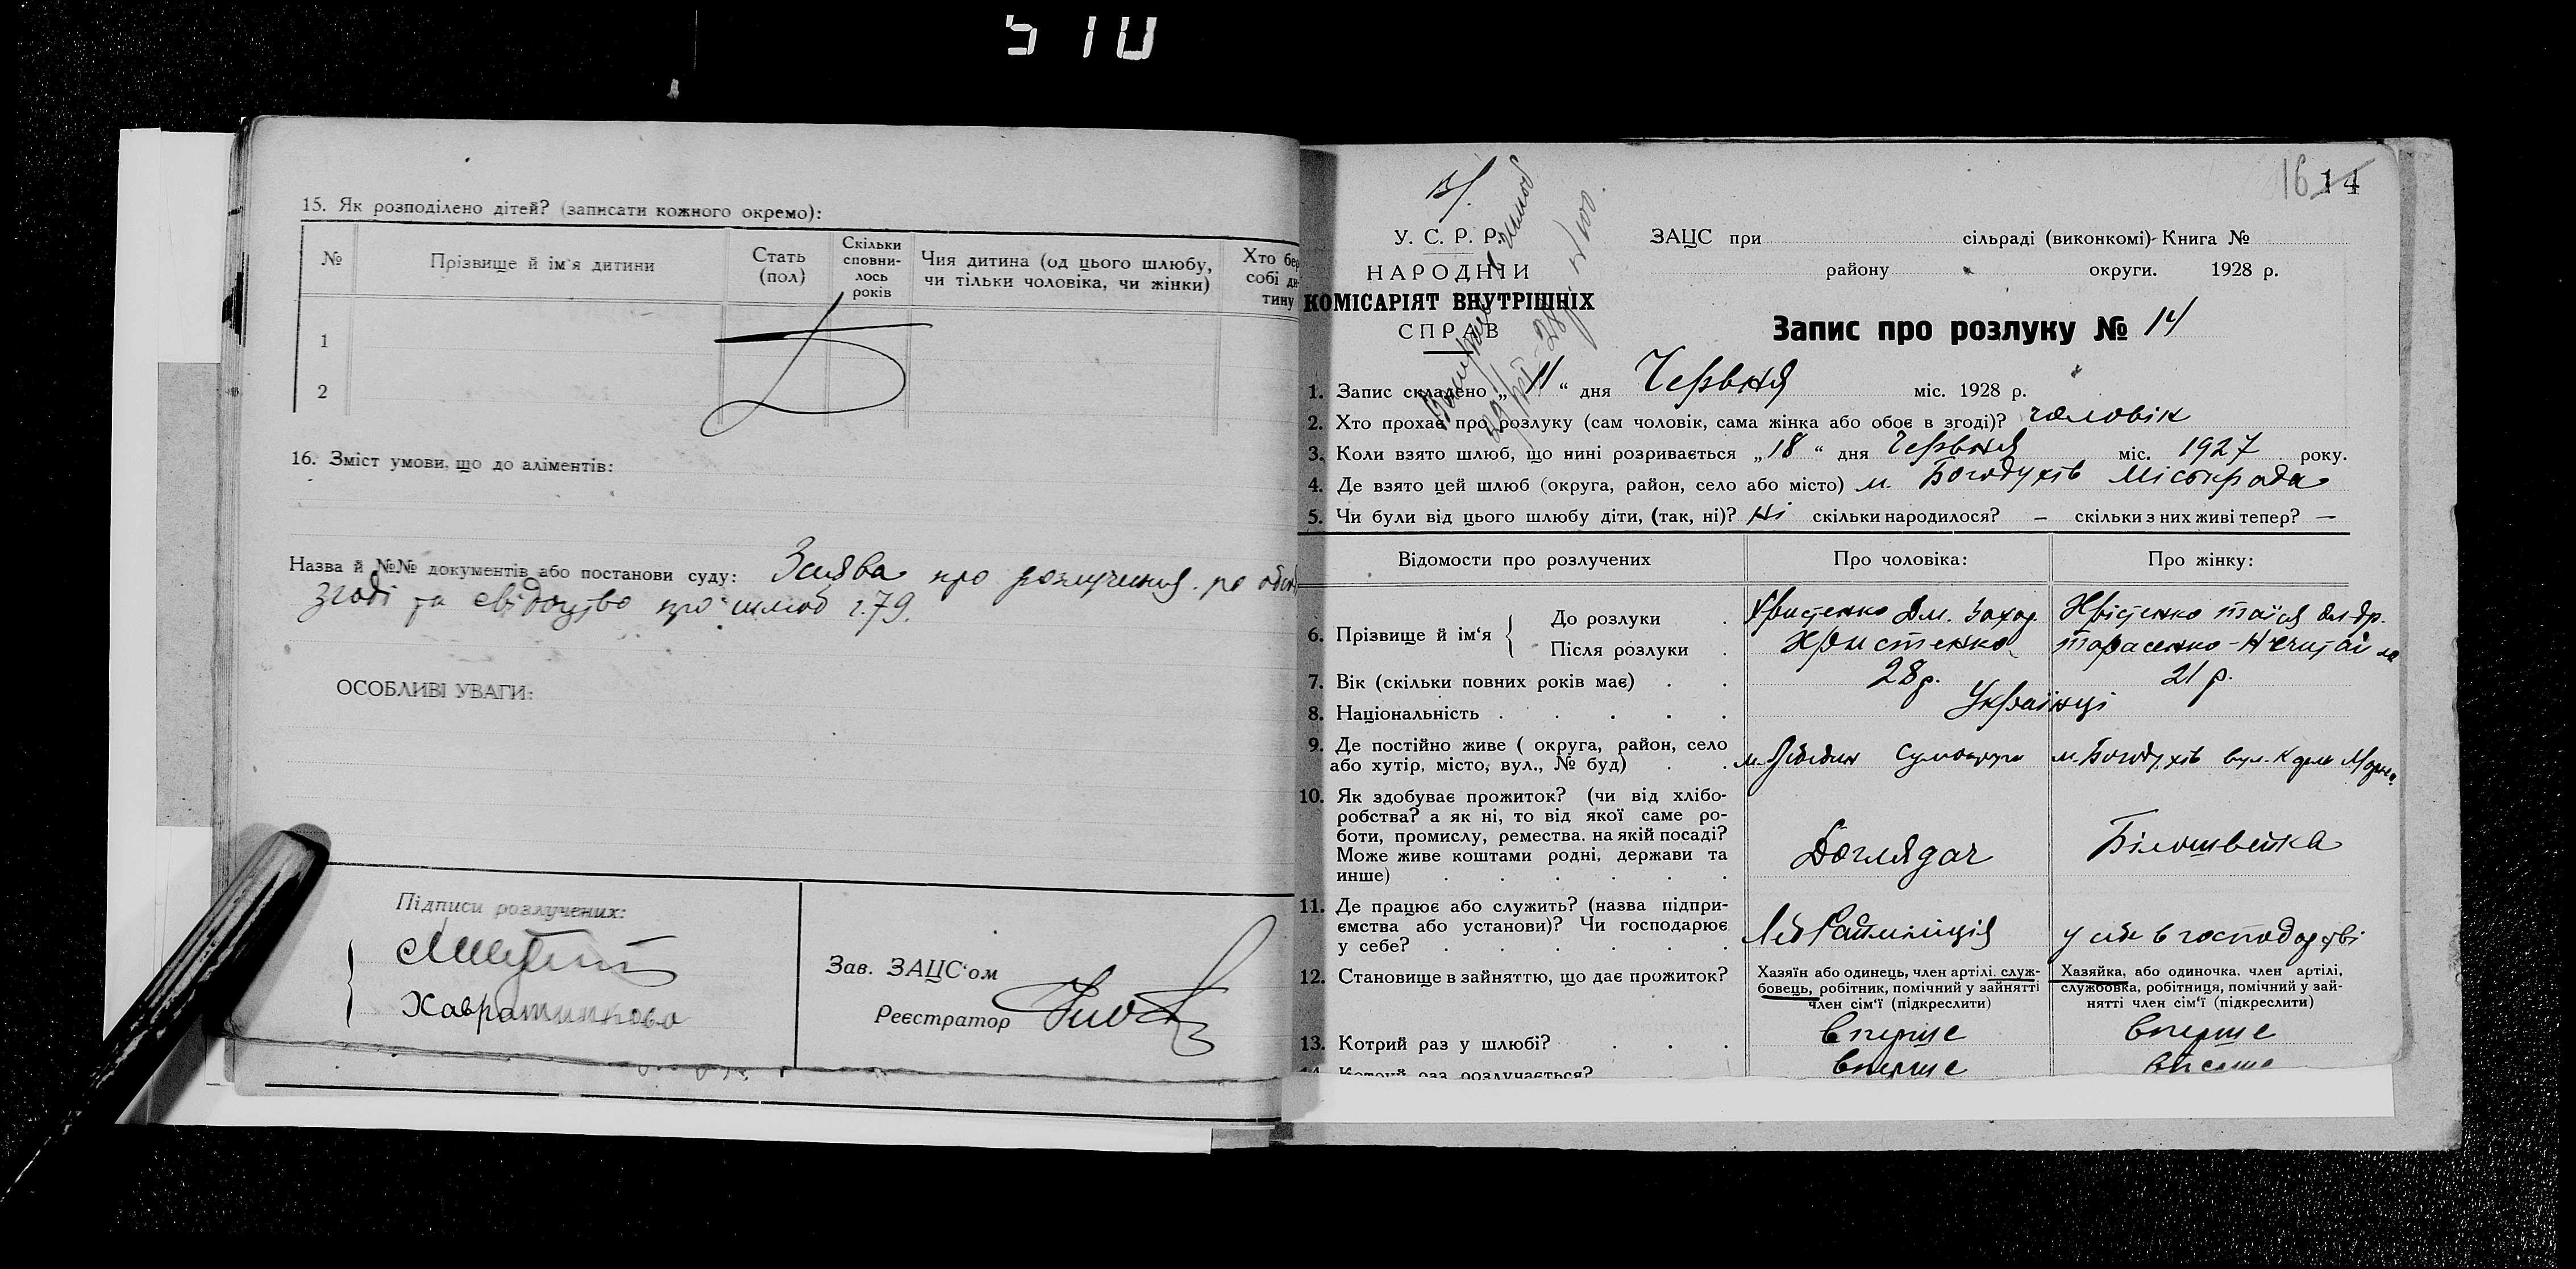 510
15. Як розподілено дітей? (записати кожного окремо):
№
Прізвище й ім'я дитини
Стать
(пол)
Скільки
сповни-
лось
років
Чия дитина (од цього шлюбу,
чи тільки чоловіка, чи жінки)
Хто бер
собі ди
тину
1
2
16. Зміст умови, що до аліментів:
Назва й №№ документів або постанови суду: Заява про розлучення по обоп
згоді та свідоцтво про шлюб г.79.
ОСОБЛИВІ УВАГИ:
Підписи розлучених:
Зав. ЗАЦС'ом
Реєстратор
16 14
У. С. Р. Р.
НАРОДНІЙ
КОМІСАРІЯТ ВНУТРІШНІХ
СПРАВ
ЗАЦС при сільраді (виконкомі)- Книга №
району округи. 1928 р.
Запис про розлуку № 14
1. Запис складено „11“ дня Червня міс. 1928 р.
2. Хто прохає про розлуку (сам чоловік, сама жінка або обоє в згоді)? чоловік
3. Коли взято шлюб, що нині розривається „18“ дня Червня міс. 1927 року.
4. Де взято цей шлюб (округа, район, село або місто) м. Богодухів Міськрада
5. Чи були від цього шлюбу діти, (так, ні)? Ні скільки народилося? — скільки з них живі тепер? —
Відомости про розлучених
Про чоловіка:
Про жінку:
6. Прізвище й ім'я { До розлуки . Христенко Дм. Захар. Христенко Таїся
Після розлуки . Христенко Тарасенко-Нечитайло
7. Вік (скільки повних років має) . . 28 р. 21 р.
8. Національність . . . . . Українці
9. Де постійно живе ( округа, район, село
або хутір, місто, вул., № буд) . . м. Лебедин Сумокруги м. Богодухів вул. Карла Маркса
10. Як здобуває прожиток? (чи від хлібо-
робства? а як ні, то від якої саме ро-
боти, промислу, ремества. на якій посаді?
Може живе коштами родні, держави та
инше) . . . . . . Доглядач Білошвейка
11. Де працює або служить? (назва підпри-
ємства або установи)? Чи господарює
у себе? . . . . . . Леб Райміліція у себе в господарстві
12. Становище в зайняттю, що дає прожиток?
Хазяїн або одинець, член артілі. служ-
бовець, робітник, помічний у зайнятті
член сім'ї (підкреслити)
Хазяйка, або одиночка. член артілі,
службовка, робітниця, помічний у зай-
нятті член сім'ї (підкреслити)
13. Котрий раз у шлюбі? . . . вперше вперше
14. Котрий раз розлучається? вперше вперше